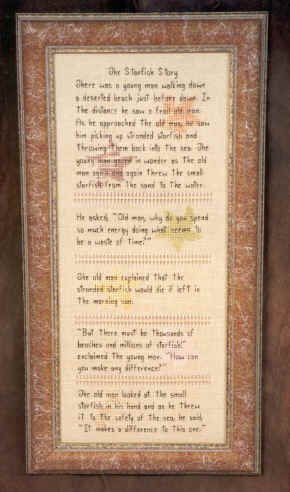 The Starfish Story
There was a young man walking down
a deserted beach just before dawn. In
the distance he saw a frail old man.
As he approached the old man, he saw
him picking up stranded starfish and
throwing them back into the sea. The
young man gazed in wonder as the old
man again and again threw the small
starfish from the sand to the water.
He asked, "Old man, why do you spend
so much energy doing what seems to
be a waste of time?"
The old man explained that the
stranded starfish would die if left in
the morning sun.
"But there must be thousands of
beaches and millions of starfish!"
exclaimed the young man. "How can
you make any difference?"
The old man looked at the small
starfish in his hand and as he threw
it to the safety of the sea, he said,
"It makes a difference to this one."